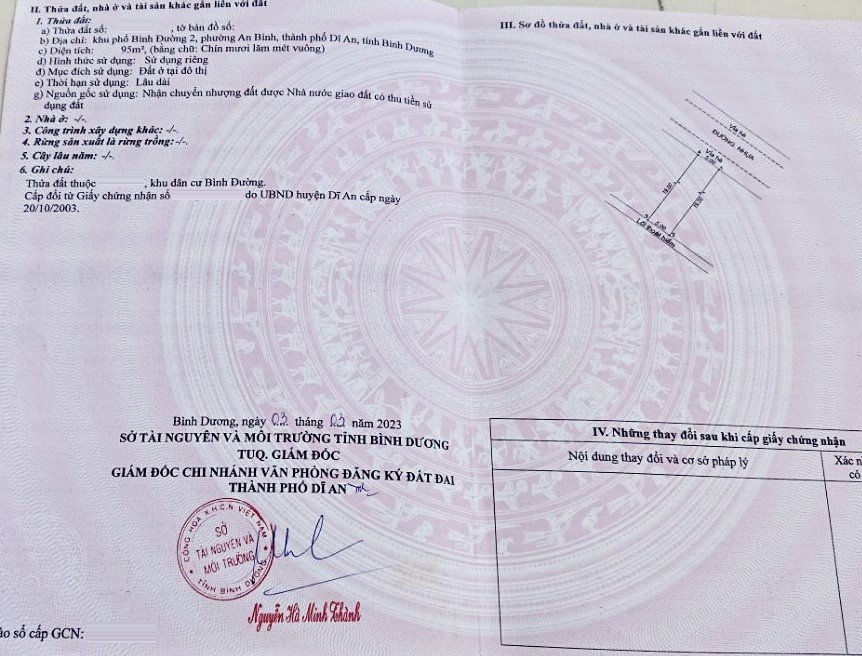 II. Thửa đất, nhà ở và tài sản khác gắn liền với đất
1. Thửa đất:
a) Thửa đất số: , tờ bản đồ số:
b) Địa chỉ: khu phố Bình Đường 2, phường An Bình, thành phố Dĩ An, tỉnh Bình Dương
c) Diện tích: 95m², (bằng chữ: Chín mươi lăm mét vuông)
d) Hình thức sử dụng: Sử dụng riêng
đ) Mục đích sử dụng: Đất ở tại đô thị
e) Thời hạn sử dụng: Lâu dài
g) Nguồn gốc sử dụng: Nhận chuyển nhượng đất được Nhà nước giao đất có thu tiền sử
dụng đất
2. Nhà ở: -/-.
3. Công trình xây dựng khác: -/-.
4. Rừng sản xuất là rừng trồng: -/-.
5. Cây lâu năm: -/-.
6. Ghi chú:
Thửa đất thuộc , khu dân cư Bình Đường.
Cấp đổi từ Giấy chứng nhận số do UBND huyện Dĩ An cấp ngày
20/10/2003.
Bình Dương, ngày 03 tháng 02 năm 2023
SỞ TÀI NGUYÊN VÀ MÔI TRƯỜNG TỈNH BÌNH DƯƠNG
TUQ. GIÁM ĐỐC
GIÁM ĐỐC CHI NHÁNH VĂN PHÒNG ĐĂNG KÝ ĐẤT ĐAI
THÀNH PHỐ DĨ AN
CỘNG HÒA X.H.C.N VIỆT NAM
SỞ
TÀI NGUYÊN VÀ
MÔI TRƯỜNG
TỈNH BÌNH DƯƠNG
Nguyễn Hà Minh Thành
ào sổ cấp GCN:
III. Sơ đồ thửa đất, nhà ở và tài sản khác gắn liền với đất
Vỉa hè
ĐƯỜNG NHỰA
Vỉa hè
5.00
19.00
19.00
5.00
Lối thoát hiểm
IV. Những thay đổi sau khi cấp giấy chứng nhận
Nội dung thay đổi và cơ sở pháp lý
Xác n
có